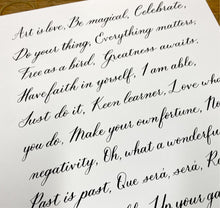 Art is love, Be magical, Celebrate,
Do your thing, Everything matters,
Free as a bird, Greatness awaits.
Have faith in yorself, I am able,
Just do it, Keen learner, Love who
you do, Make your own fortune, No
negativity, Oh, what a wonderfu
Past is past, Que será, será, R
Up your ga